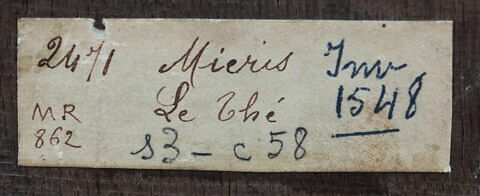 2471 Mieris Inv
MR Le Thé 1548
862 s3 - c 58